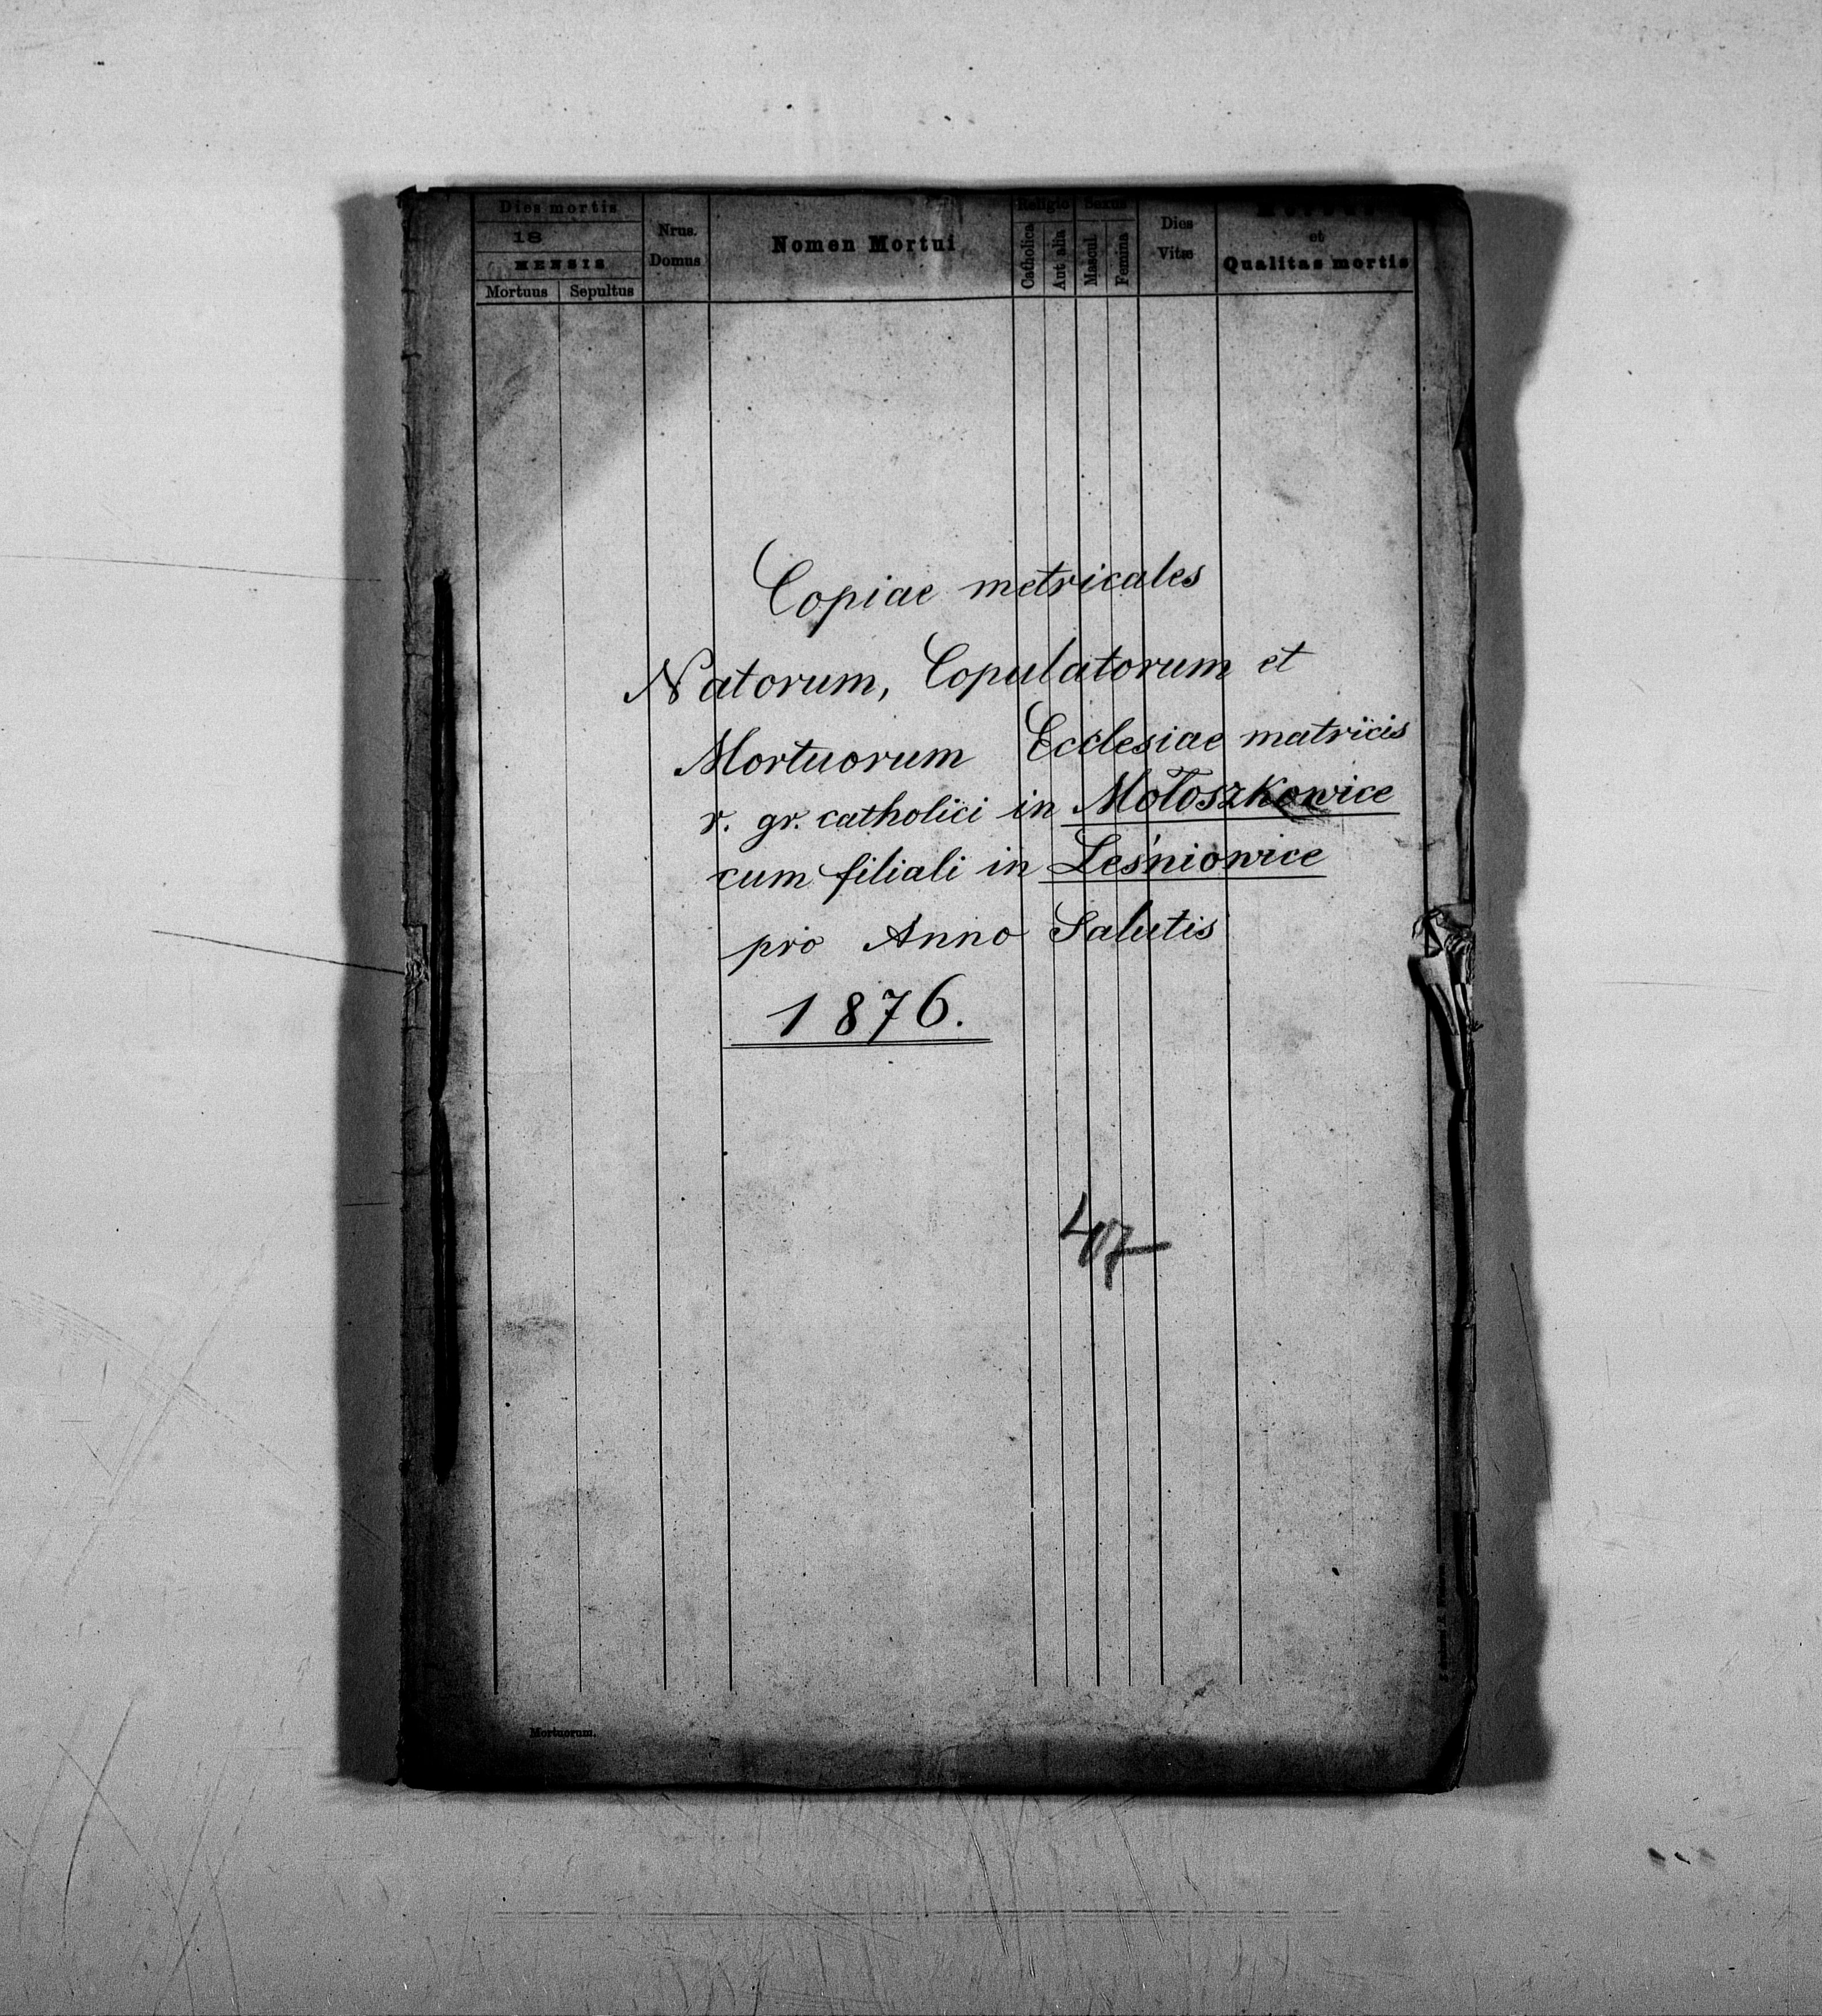 Dies mortis
18
MENSIS
Mortuus Sepultus
Nrus.
Domus
Nomen Mortui
Religio
Catholica
Aut alia
Sexus
Mascul.
Femina
Dies
Vitæ
et
Qualitas mortis
Copiae metricales
Natorum, Copulatorum et
Mortuorum Ecclesiae matricis
r. gr. catholici in Mołoszkowice
cum filiali in Leśniowice
pro Anno Salutis
1876.
47
Mortuorum.